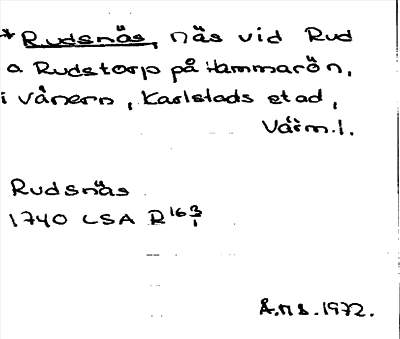 *Rudsnäs, näs vid Rud
o Rudstorp på Hammarön,
i Vänern, Karlstads stad,
Värml.
Rudsnäs
1740 LSA R163/1
Å.N S. 1972.